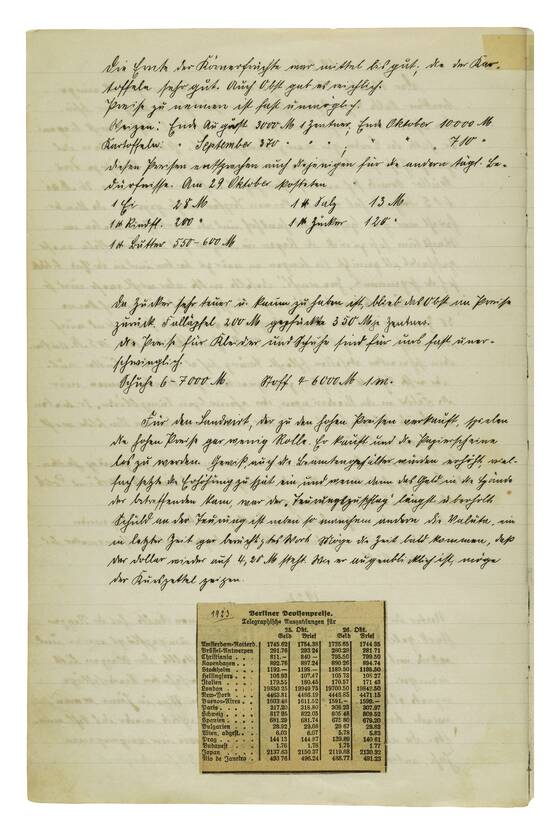 Die Ernte der Körnerfrüchte war mittel bis gut, die der Kar-
toffeln sehr gut. Auch Obst gab es reichlich.
Preise zu nennen ist fast unmöglich.
Weizen: Ende August 3000 M 1 Zentner, Ende Oktober 10000 M
Kartoffeln: " September 370 " " , " " 710 "
Diesen Preisen entsprechen auch diejenigen für die andern tägl. Be-
dürfnisse. Am 29. Oktober kosteten
1 Ei 28 M 1 ℔ Salz 13 M
1 ℔ Rindfl. 200 " 1 ℔ Zucker 120 "
1 ℔ Butter 550-600 M
Da Zucker sehr teuer u. kaum zu haben ist, blieb das Obst im Preise
zurück. Falläpfel 200 M gepflückte 350 M je Zentner.
Die Preise für Kleider und Schuhe sind für uns fast uner-
schwinglich.
Schuhe 6-7000 M. Stoff 4-6000 M 1 m.
Für den Landwirt, der zu den hohen Preisen verkauft, spielen
die hohen Preise gar wenig Rolle. Er kauft um die Papierscheine
los zu werden. Gewiß auch die Beamtengehälter wurden erhöht, viel-
fach setzte die Erhöhung zu spät ein und wenn dann das Geld in die Hände
der betreffenden kam, war der "Teuerungszuschlag" längst überholt.
Schuld an der Teuerung ist neben so manchem andern die Valuta, ein
in letzter Zeit gar berüchtigtes Wort. Möge die Zeit bald kommen, daß
der Dollar wieder auf 4,20 M steht. Wie er augenblicklich ist, möge
der Kurszettel zeigen.
1923
Berliner Devisenpreise.
Telegraphische Auszahlungen für
25. Okt. 26. Okt.
Geld Brief Geld Brief
Amsterdam-Rotterd. 1745.62 1754.38 1735.65 1744.35
Brüssel-Antwerpen 291.76 293.24 280.29 281.71
Christiania 811.— 840.— 795.50 799.50
Kopenhagen 892.76 897.24 890.26 894.74
Stockholm 1192.— 1198.—
Helsingfors 106.93 107.47 105.73 106.27
Italien 179.55 180.45 170.57 171.43
London 19850.25 19949.75 19700.50 19842.50
New-York 4463.81 4486.19 4448.85 4471.15
Buenos-Aires 1603.48 1611.52 1591.— 1599.—
Paris 317.20 318.80 306.23 307.97
Schweiz 817.95 822.05 805.48 809.52
Spanien 681.29 681.74 675.80 679.20
Bulgarien 28.92 29.08 29.67 29.83
Wien, abgest. 6.03 6.07 5.78 5.82
Prag 144.13 144.87 139.89 140.61
Budapest 1.76 1.78 1.75 1.77
Japan 2137.63 2150.37 2119.68 2130.32
Rio de Janeiro 493.76 496.24 488.77 491.23